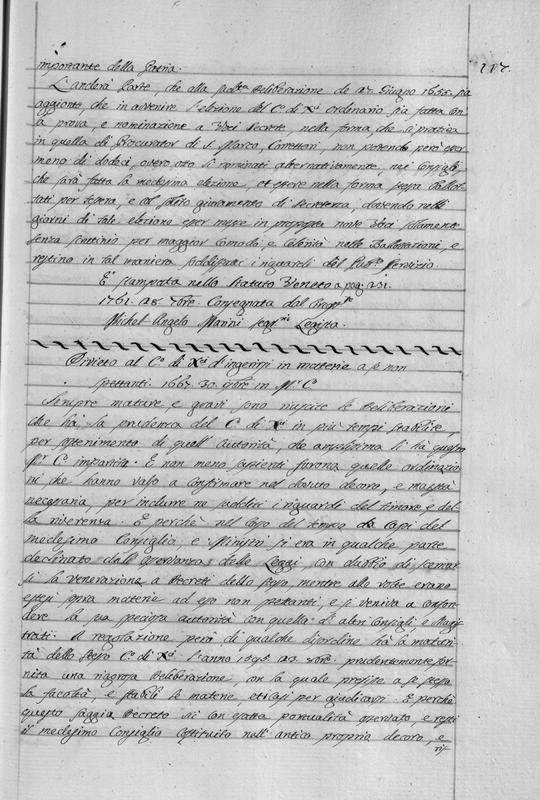 importante della Patria. 117.
L'anderà Parte, che alla sud.ta Deliberazione de 27. Giugno 1655. sia
aggionto, che in avvenire l'elezione del C.o di X.ci ordinario sia fatta con
la prova, e nominazione a Voci Secrete, nella forma, che si pratica
in quella di Procurator di S. Marco, Correttori, non potendo però esser
meno di dodeci, overo otto li nominati alternativamente, nei Consigli,
che sarà fatta la medesima elezione, et essere nella forma stessa Ballot-
tati per Tessera, e col solito giuramento di Secretezza, dovendo nelli
giorni di tale elezione esser messe in proposta nove Voci solamente
senza scrutinio per maggior Comodo, e Celerità nelle Ballottazioni, e
restino in tal maniera soddisfatti i riguardi del Pub.o Servizio.
E' stampata nello Statuto Veneto a pag. 231.
1761. 28. 7bre. Consegnata dal
Michel Angelo Marini Seg.rio Legista.
Divieto al C.o di X.ci d'ingerirsi in materie a se non
spettanti. 1667. 30. in M.r C.
Sempre mature, e gravi sono riuscite le Deliberazioni
che hà la prudenza del C.o di X.ci in più tempi stabilite,
per sostenimento di quell'autorità, che amplissima li hà questo
M.r C.o impartita. E non meno sapienti furono quelle ordinazio
ni che hanno valso a Conservare nel dovuto decoro, e maestà
necessaria, per indurre ne sudditi i riguardi del timore e del-
la riverenza. E perchè nel Corso del tempo da Capi del
medesimo Consiglio e Ministri si era in qualche parte
declinato dall'osservanza delle Leggi, con dubbio di scemar-
si la Venerazione a Decreti dello stesso, mentre alle volte erano
estesi sopra materie ad esso non spettanti, e si veniva a confon-
dere la sua precisa autorità con quella di altri Consigli, e Magis-
trati. A regolazione però di qualche disordine hà la maturi-
tà dello Stesso C.o di X.ci l'anno 1595. 23. 7bre. prudentemente for-
nita una vigorosa Deliberazione, con la quale prefisse a se stesso
la facoltà, e stabilì le materie, et i casi per giudicarsi. E perchè
questo saggio Decreto sii con esatta pontualità osservato, e resti
il medesimo Consiglio Costituito nell'antico proprio decoro, e